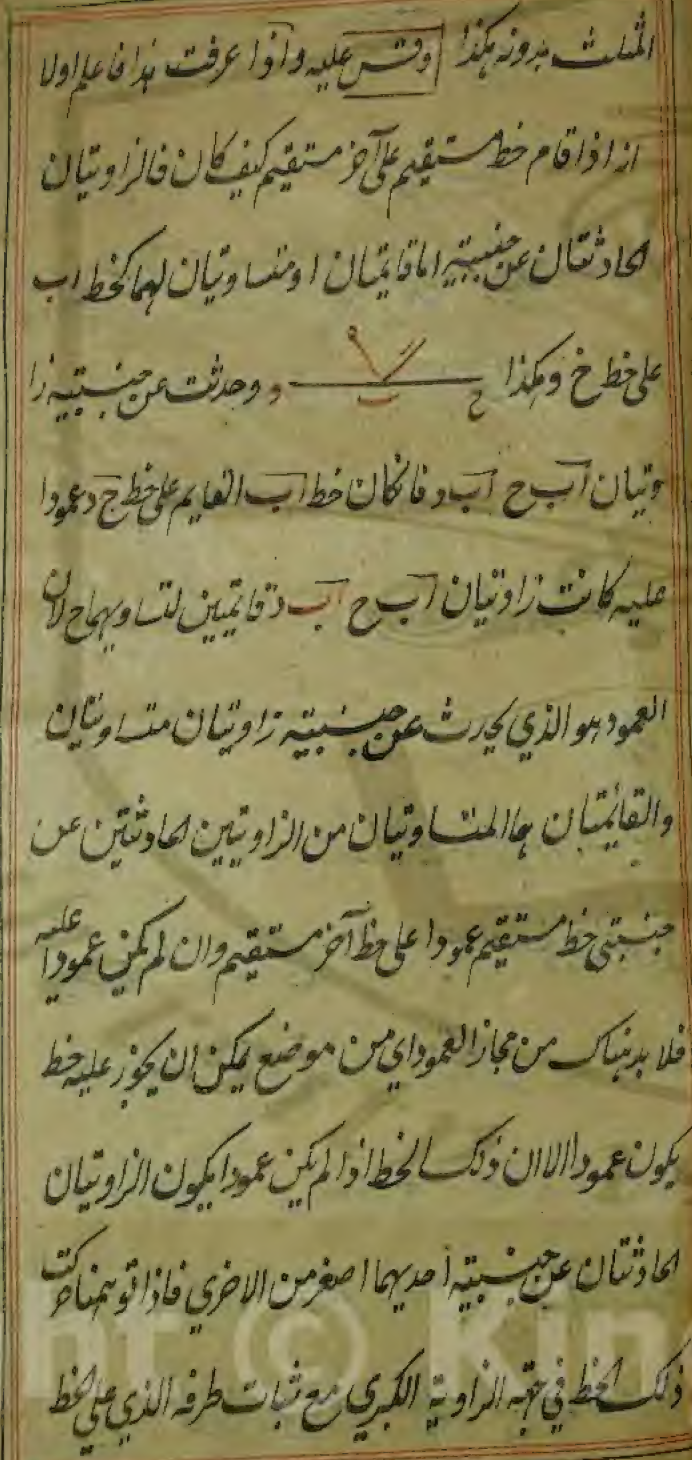 المثلث بدونه هكذا وقس عليه واذا عرفت هذا فاعلم اولا
انه اذا قام خط مستقيم على آخر مستقيم كيف كان فالزاويتان
الحادثتان عن جنبتيه اما قايمتان او متساويتان لهما كخط اب
على خط خ وهكذا ح ب د ه وحدثت عن جنبتيه زا
ويتان آب ح آب د فانكان خط آب القايم على خط ج د عمودا
عليه كانت زاويتان آب ح آب د قايمتين لتساويهما ح لان
العمود هو الذي يحدث عن جنبتيه زاويتان متساويتان
والقائمتان هما المتساويتان من الزاويتين الحادثتين عن
جنبتي خط مستقيم عمودا على خط آخر مستقيم وان لم يكن عمودا عليه
فلا بد هناك من مجاز العمود اي من موضع يمكن ان يجوز عليه خط
يكون عمودا الا ان ذلك الخط اذا لم يكن عمودا يكون الزاويتان
الحادثتان عن جنبتيه احديهما اصغر من الاخري فاذا توهمنا حركت
ذلك الخط في جهة الزاوية الكبري مع ثبات طرفه الذي على الخط
nt © Kin